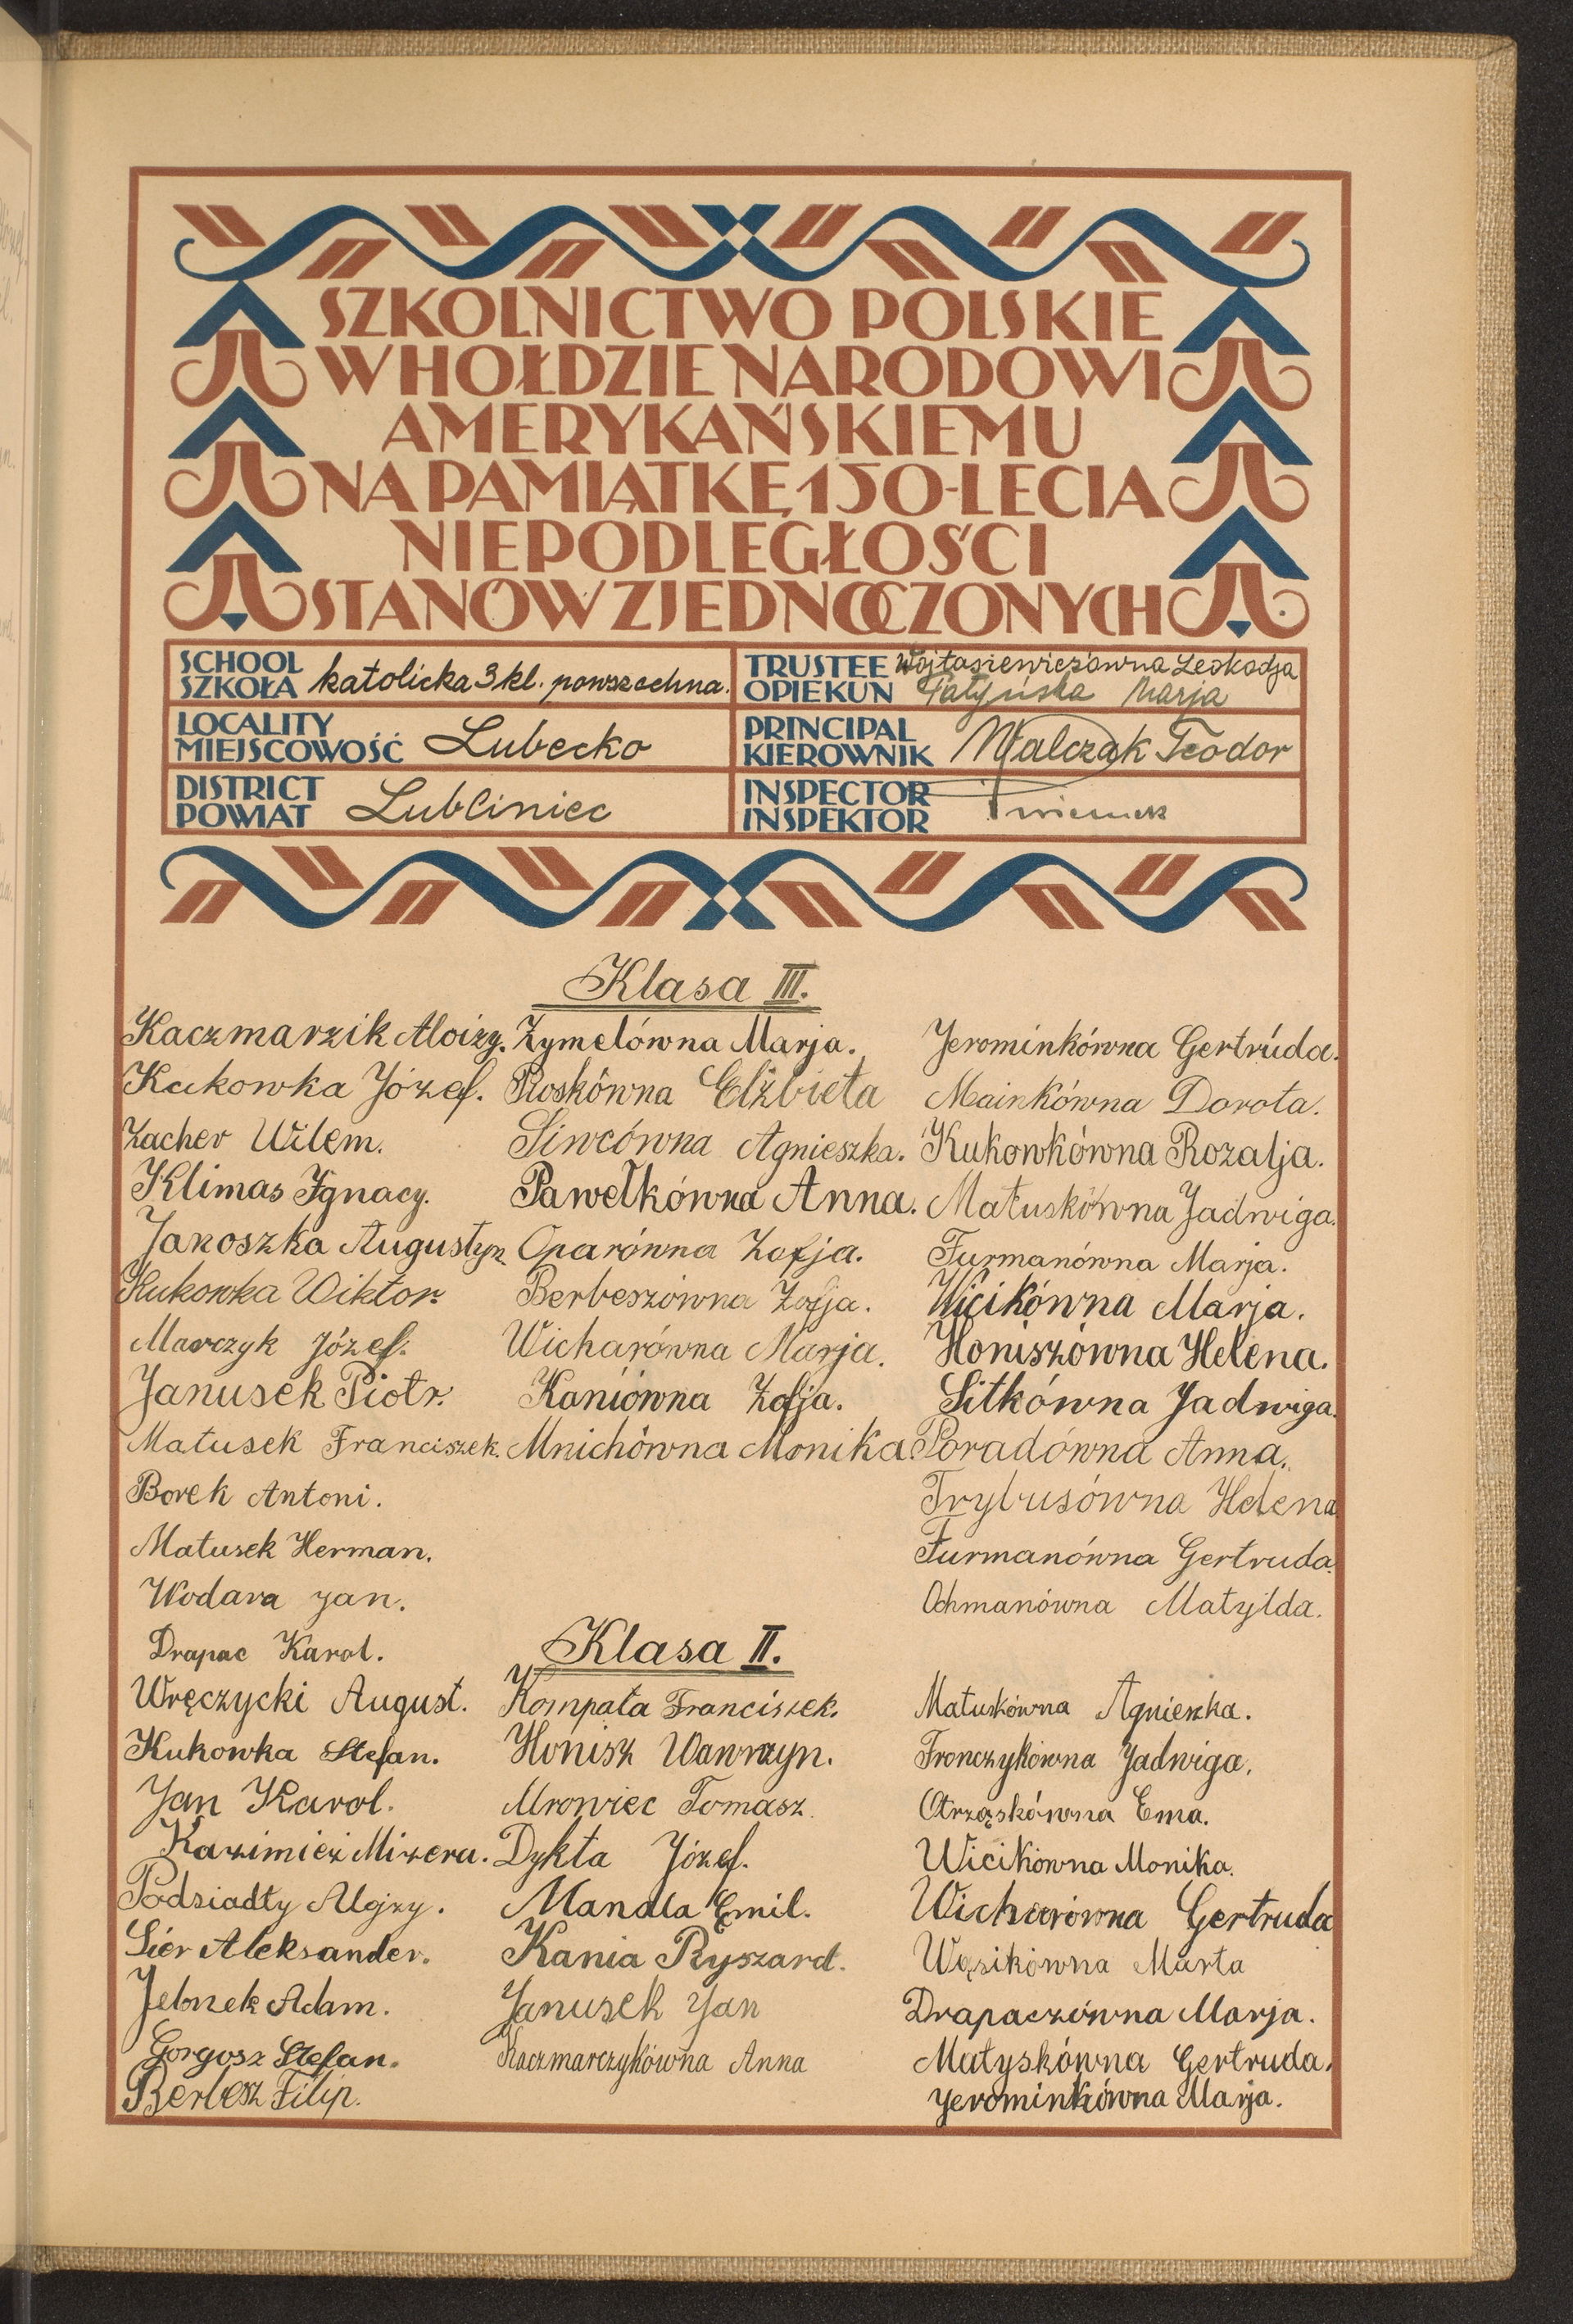 SZKOLNICTWO POLSKIE
W HOŁDZIE NARODOWI
AMERYKAŃSKIEMU
NA PAMIĄTKĘ 150-LECIA
NIEPODLEGŁOŚCI
STANÓW ZJEDNOCZONYCH
SCHOOL
SZKOŁA katolicka 3 kl. powszechna.
TRUSTEE Wojtasiewiczówna Leokadja
OPIEKUN Marja
LOCALITY
MIEJSCOWOŚĆ Lubecko
PRINCIPAL
KIEROWNIK Walczak Teodor
DISTRICT
POWIAT Lubliniec
INSPECTOR
INSPEKTOR
Klasa III.
Kaczmarzik Aloizy.
Kukowka Józef.
Zacher Wilem.
Klimas Ignacy.
Jakoszka Augustyn
Kukowka Wiktor.
Marczyk Józef.
Janusek Piotr.
Matusek Franciszek.
Borek Antoni.
Matusek Herman.
Wodara Jan.
Drapac Karol.
Wręczycki August.
Kukowka Stefan.
Jan Karol.
Kazimież Mizera.
Podsiadły Alojzy.
Sier Aleksander.
Jelonek Adam.
Gorgosz Stefan.
Berbesz Filip.
Zymelówna Marja.
Roskówna Elżbieta
Siwcówna Agnieszka.
Pawełkówna Anna.
Oparówna Zofja.
Berbeszówna Zofja.
Wicharówna Marja.
Kaniówna Zofja.
Mnichówna Monika.
Jerominkówna Gertruda.
Mainkówna Dorota.
Kukowkówna Rozalja.
Matuskówna Jadwiga.
Furmanówna Marja.
Wicikówna Marja.
Honiszówna Helena.
Sitkówna Jadwiga.
Poradówna Anna.
Trybusówna Helena
Furmanówna Gertruda.
Ochmanówna Matylda.
Klasa II.
Kompała Franciszek.
Honisz Wawrzyn.
Mrowiec Tomasz.
Dykta Józef.
Mandla Emil.
Kania Ryszard.
Janusek Jan
Kaczmarczykówna Anna
Matuskówna Agnieszka.
Fronczykówna Jadwiga.
Otrząskówna Ema.
Wicikówna Monika.
Wicharówna Gertruda
Wąsikówna Marta
Drapaczówna Marja.
Matyskówna Gertruda.
Jerominkówna Marja.